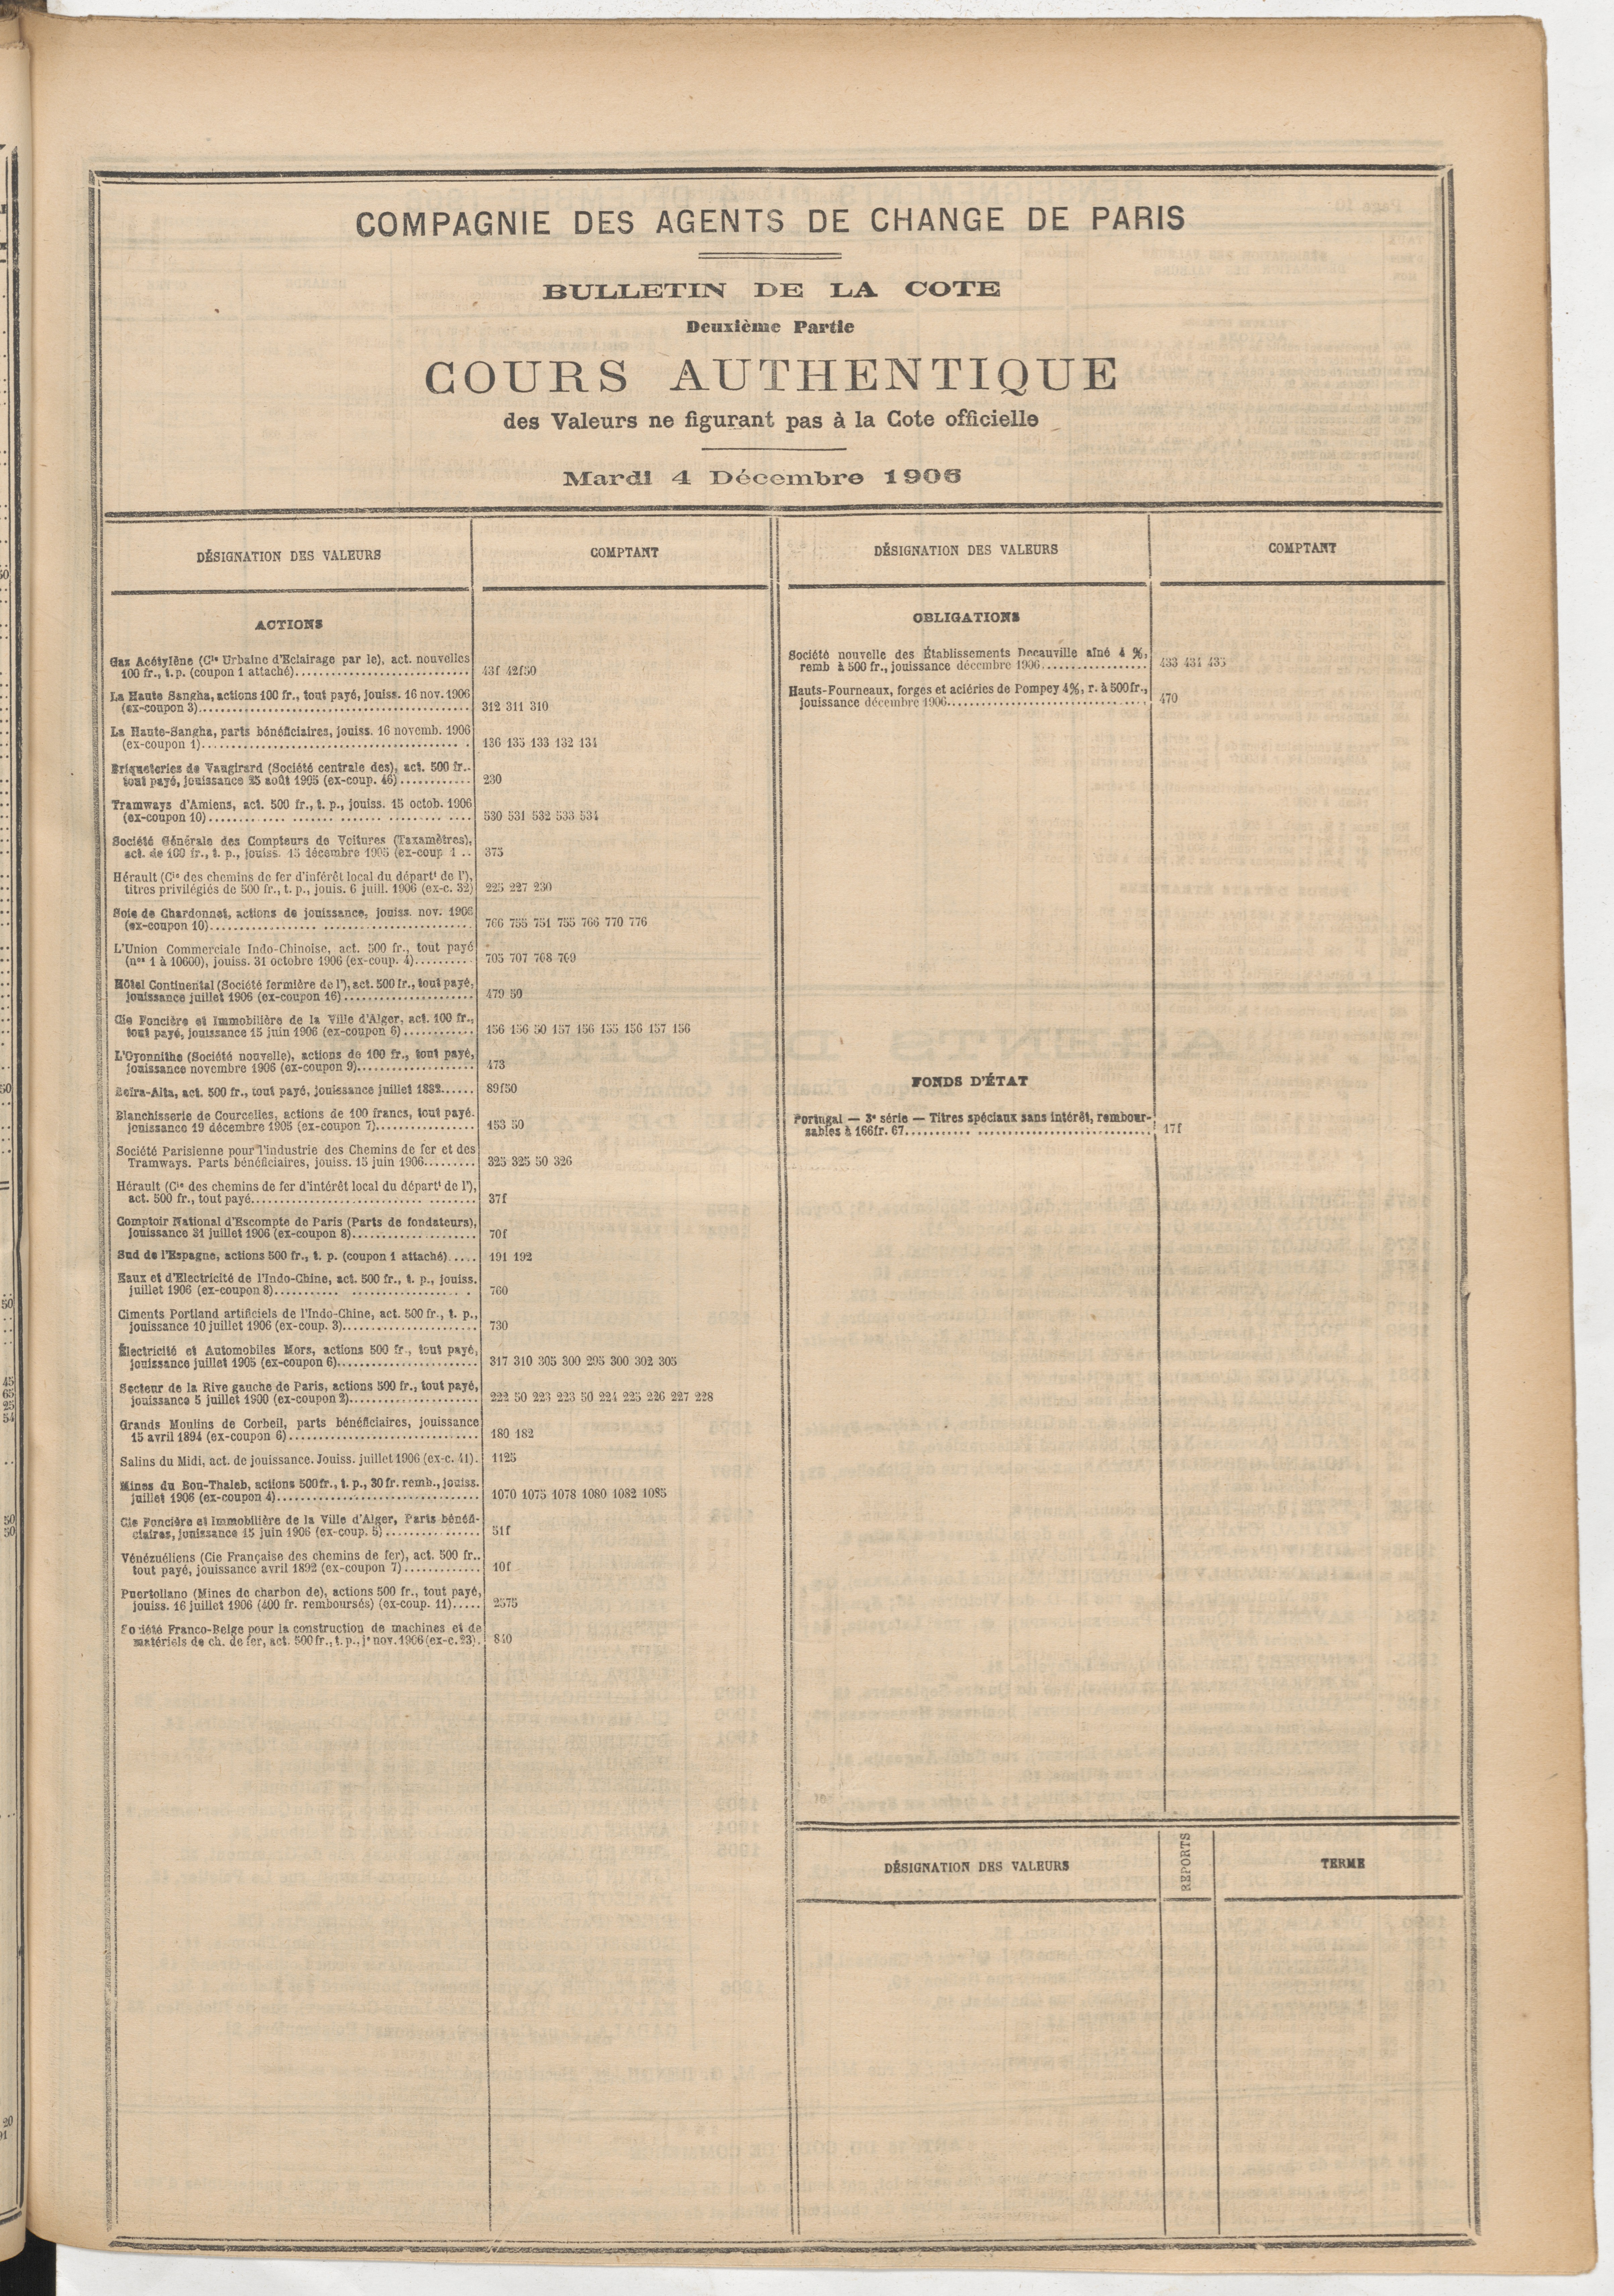 COMPAGNIE DES AGENTS DE CHANGE DE PARIS
BULLETIN DE LA COTE
Deuxième Partie
COURS AUTHENTIQUE
des Valeurs ne figurant pas à la Cote officielle
Mardi 4 Décembre 1906
DÉSIGNATION DES VALEURS
COMPTANT
ACTIONS
Gaz Acétylène (Cie Urbaine d'Eclairage par le), act. nouvelles
100 fr., t. p. (coupon 1 attaché) 43f 42f50
La Haute Sangha, actions 100 fr., tout payé, jouiss. 16 nov. 1906
(ex-coupon 3) 312 311 310
La Haute-Sangha, parts bénéficiaires, jouiss. 16 novemb. 1906
(ex-coupon 1) 136 135 133 132 134
Briqueteries de Vaugirard (Société centrale des), act. 500 fr..
tout payé, jouissance 25 août 1905 (ex-coup. 46) 230
Tramways d'Amiens, act. 500 fr., t. p., jouiss. 15 octob. 1906
(ex-coupon 10) 530 531 532 533 534
Société Générale des Compteurs de Voitures (Taxamètres),
act. de 100 fr., t. p., jouiss. 15 décembre 1905 (ex-coup 1 .. 375
Hérault (Cie des chemins de fer d'intérêt local du départt de l'),
titres privilégiés de 500 fr., t. p., jouis. 6 juill. 1906 (ex-c. 32) 225 227 230
Soie de Chardonnet, actions de jouissance, jouiss. nov. 1906
(ex-coupon 10) 766 755 751 755 766 770 776
L'Union Commerciale Indo-Chinoise, act. 500 fr., tout payé
(nos 1 à 10600), jouiss. 31 octobre 1906 (ex-coup. 4) 705 707 768 769
Hôtel Continental (Société fermière de l'), act. 500 fr., tout payé,
jouissance juillet 1906 (ex-coupon 16) 479 50
Cie Foncière et Immobilière de la Ville d'Alger, act. 100 fr.,
tout payé, jouissance 15 juin 1906 (ex-coupon 6) 156 156 50 157 156 155 156 157 156
L'Oyonnithe (Société nouvelle), actions de 100 fr., tout payé,
jouissance novembre 1906 (ex-coupon 9) 473
Beïra-Alta, act. 500 fr., tout payé, jouissance juillet 1882 89f50
Blanchisserie de Courcelles, actions de 100 francs, tout payé.
jouissance 19 décembre 1905 (ex-coupon 7) 153 50
Société Parisienne pour l'industrie des Chemins de fer et des
Tramways. Parts bénéficiaires, jouiss. 15 juin 1906 325 325 50 326
Hérault (Cie des chemins de fer d'intérêt local du départt de l'),
act. 500 fr., tout payé 37f
Comptoir National d'Escompte de Paris (Parts de fondateurs),
jouissance 31 juillet 1906 (ex-coupon 8) 70f
Sud de l'Espagne, actions 500 fr., t. p. (coupon 1 attaché) 191 192
Eaux et d'Electricité de l'Indo-Chine, act. 500 fr., t. p., jouiss.
juillet 1906 (ex-coupon 8) 760
Ciments Portland artificiels de l'Indo-Chine, act. 500 fr., t. p.,
jouissance 10 juillet 1906 (ex-coup. 3) 730
Électricité et Automobiles Mors, actions 500 fr., tout payé,
jouissance juillet 1905 (ex-coupon 6) 317 310 305 300 295 300 302 305
Secteur de la Rive gauche de Paris, actions 500 fr., tout payé,
jouissance 5 juillet 1900 (ex-coupon 2) 222 50 223 223 50 224 225 226 227 228
Grands Moulins de Corbeil, parts bénéficiaires, jouissance
15 avril 1894 (ex-coupon 6) 180 182
Salins du Midi, act. de jouissance. Jouiss. juillet 1906 (ex-c. 41). 1125
Mines du Bou-Thaleb, actions 500 fr., t. p., 30 fr. remb., jouiss.
juillet 1906 (ex-coupon 4) 1070 1075 1078 1080 1082 1085
Cie Foncière et Immobilière de la Ville d'Alger, Parts bénéfi-
ciaires, jouissance 15 juin 1906 (ex-coup. 5) 51f
Vénézuéliens (Cie Française des chemins de fer), act. 500 fr..
tout payé, jouissance avril 1892 (ex-coupon 7) 10f
Puertollano (Mines de charbon de), actions 500 fr., tout payé,
jouiss. 16 juillet 1906 (400 fr. remboursés) (ex-coup. 11) 2575
Société Franco-Belge pour la construction de machines et de
matériels de ch. de fer, act. 500 fr., t. p., je nov. 1906 (ex-c. 23). 840
DÉSIGNATION DES VALEURS
COMPTANT
OBLIGATIONS
Société nouvelle des Établissements Decauville aîné 4 %,
remb à 500 fr., jouissance décembre 1906 433 434 435
Hauts-Fourneaux, forges et aciéries de Pompey 4%, r. à 500 fr.,
jouissance décembre 1906 470
FONDS D'ÉTAT
Portugal — 3e série — Titres spéciaux sans intérêt, rembour-
sables à 166fr. 67 17f
DÉSIGNATION DES VALEURS
REPORTS
TERME